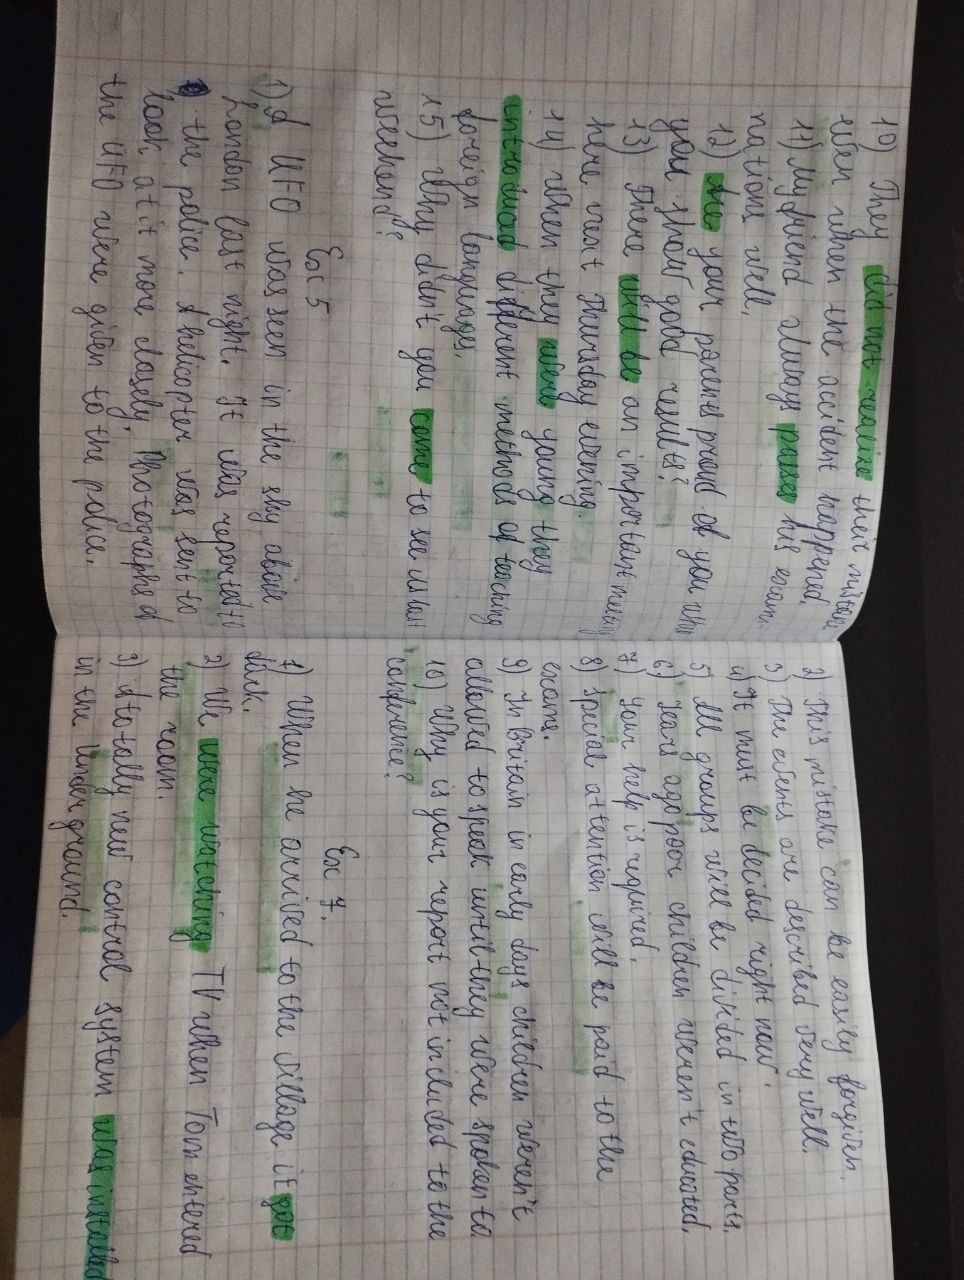 10) They did not realise their mistake
when when the accident happened.
11) My friend always passes his exam-
nations well.
12) Are your parents proud of you when
you show good results?
13) There will be an important meeting
here next Thursday evening.
14) When they were young they
introduced different methods of teaching
foreign languages.
15) Why didn't you come to see us last
weekend?
Ex 5
1) A UFO was seen in the sky above
London last night. It was reported to
the police. A helicopter was sent to
look at it more closely. Photographs of
the UFO were given to the police.
2) This mistake can be easily forgiven.
3) The events are described very well.
4) It must be decided right now.
5) All groups will be divided in two parts.
6) Years ago poor children weren't educated.
7) Your help is required.
8) Special attention will be paid to the
exams.
9) In Britain in early days children weren't
allowed to speak until they were spoken to
10) Why is your report not included to the
conference?
Ex 7.
1) When he arrived to the village it got
dark.
2) We were watching TV when Tom entered
the room.
3) A totally new control system was installed
in the underground.